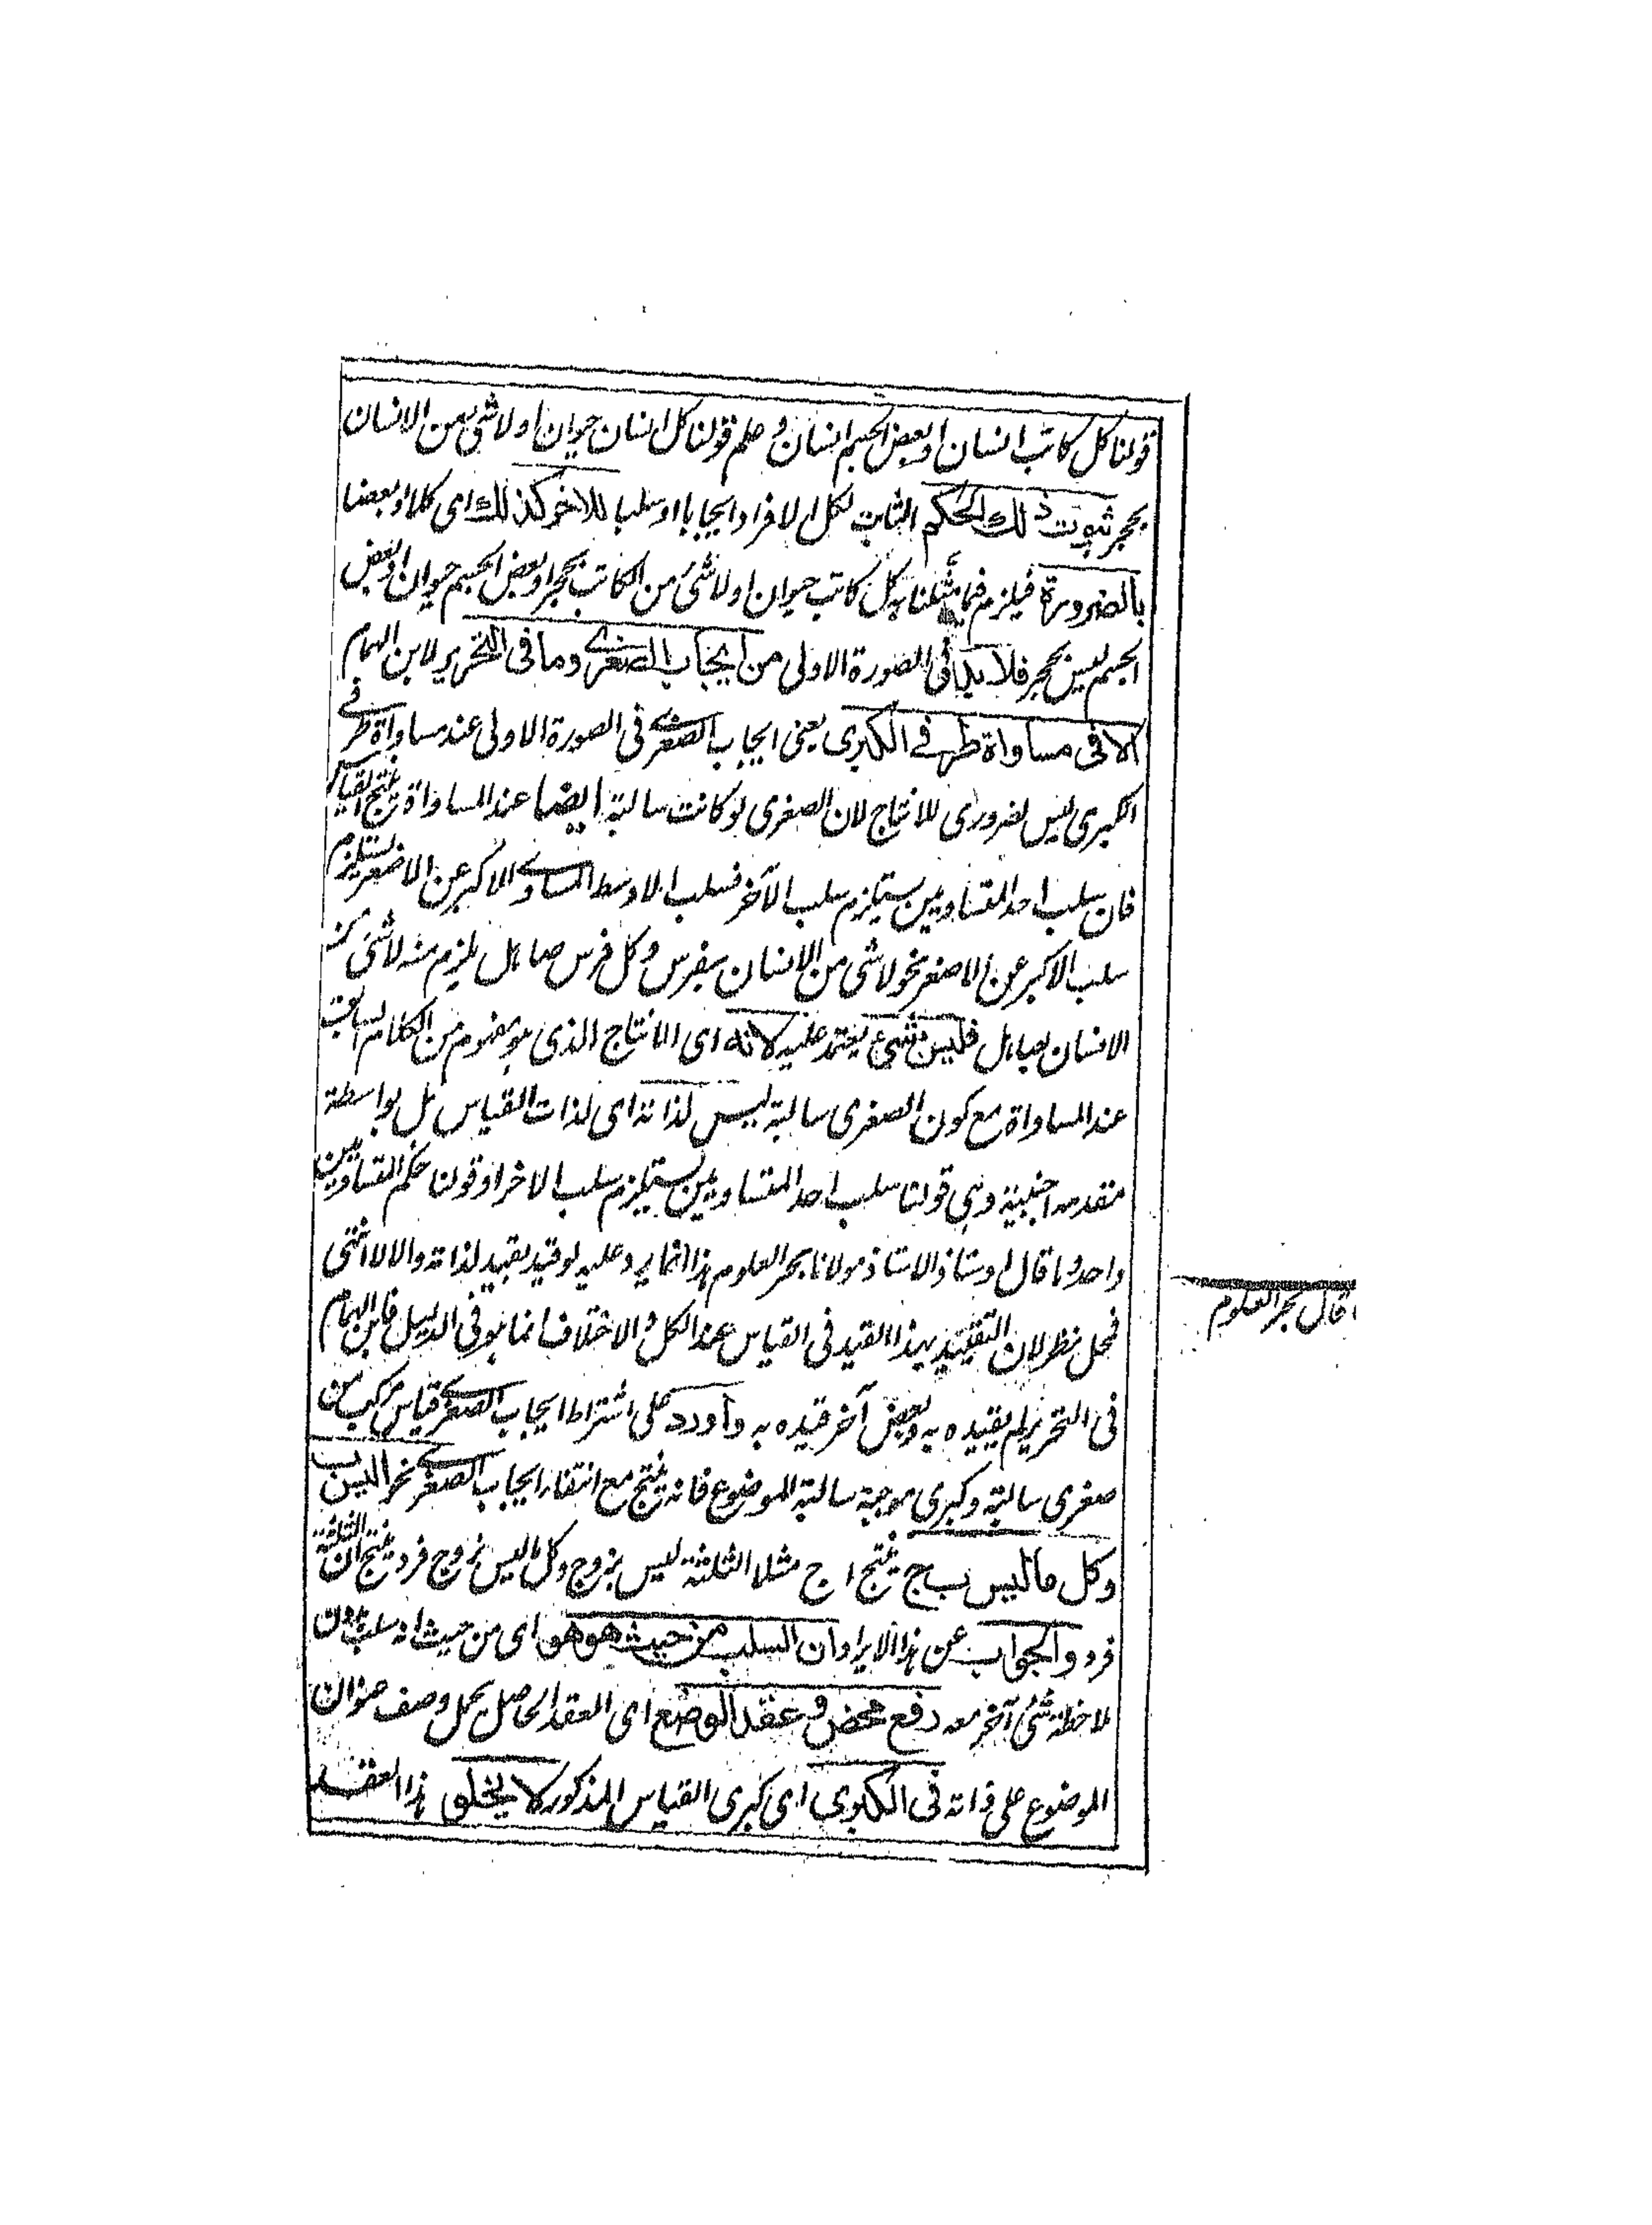 قولنا كل كاتب انسان او بعض الجسم انسان و علم قولنا كل انسان حيوان او لا شئ من الانسان
بحجر ثبوت ذلك الحكم الثابت لكل الافراد ايجابا او سلبا للاخر كذلك اى كلا او بعضا
بالضرورة فيلزم فيما مثلنا به كل كاتب حيوان او لا شئ من الكاتب بحجر او بعض الجسم حيوان او بعض
الجسم ليس بحجر فلا بد فى الصورة الاولى من ايجاب الصغرے وما فى التحرير لابن الهمام
الا فى مساواة طرفے الكبرى يعنى ايجاب الصغرے فى الصورة الاولى عند مساواة طرفے
الكبرى ليس بضرورى للانتاج لان الصغرى لو كانت سالبة ايضا عند المساواة ينتج القياس
فان سلب احد المتساويين يستلزم سلب الآخر فسلب الاوسط المساوے الاكبر عن الاصغر يستلزم
سلب الاكبر عن الاصغر نحو لا شئ من الانسان بفرس و كل فرس صاهل يلزم منه لا شئ من
الانسان بصاهل فليس بشئ يعتمد عليه لانه اى الانتاج الذى هو مفهوم من الكلام السابق
عند المساواة مع كون الصغرى سالبة ليس لذاته اى لذات القياس بل بواسطة
مقدمه اجنبية وهى قولنا سلب احد المتساويين يستلزم سلب الاخر او قولنا حكم المتساويين
واحد وما قال اوستاذ الاستاذ مولانا بحر العلوم هذا انما يرد عليه لو قيد بقيد لذاته والا لا انتهى
فمحل نظر لان التقييد بهذا القيد فى القياس عند الكل و الاختلاف انما هو فى الدليل فابن الهمام
فى التحرير لم يقيده به و بعض آخر قيده به و اورد على اشتراط ايجاب الصغرے قياس مركب من
صغرى سالبة و كبرى موجبة سالبة الموضوع فانه ينتج مع انتفاء ايجاب الصغرے نحو ا ليس ب
و كل ما ليس ب ج ينتج ا ج مثلا الثلثة ليس بزوج و كل ما ليس بزوج فرد ينتج ان الثلثة
فرد و الجواب عن هذا الايراد ان السلب من حيث هو هو اى من حيث انه سلب بدون
ملاحظة شئ آخر معه رفع محض و عقد الوضع اى العقد الحاصل بحمل وصف عنوان
الموضوع على ذاته فى الكبرى اى كبرى القياس المذكور لا يخلو هذا العقد
قال بحر العلوم